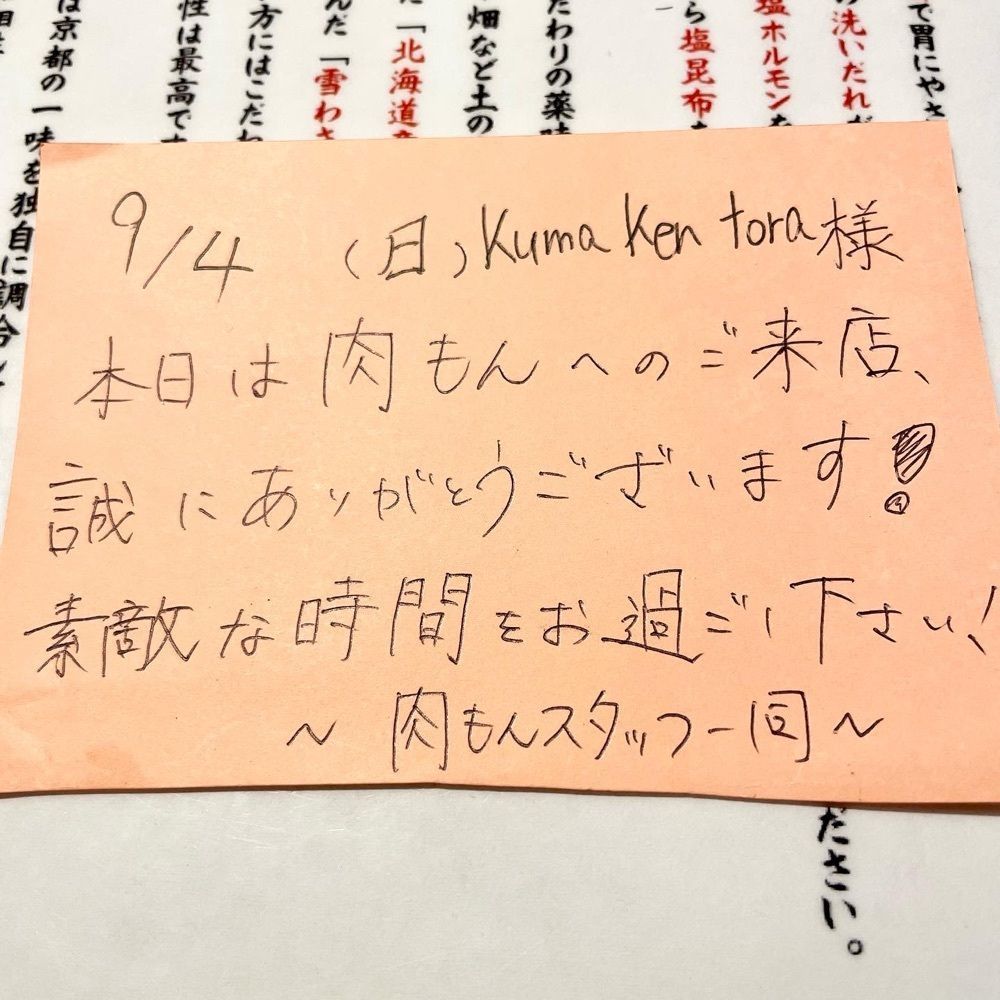 9/4 (日) Kuma Ken tora様
本日は肉もんへのご来店、
誠にありがとうございます!
素敵な時間をお過ごし下さい!
~ 肉もんスタッフ一同 ~
で胃にやさ
洗いだれ
塩ホルモン
ら塩昆布
だわりの薬味
畑など土の
「北海道産
んだ「雪わさ
方にはこだわ
性は最高です
は京都の一味を独自に調合し
ださい。